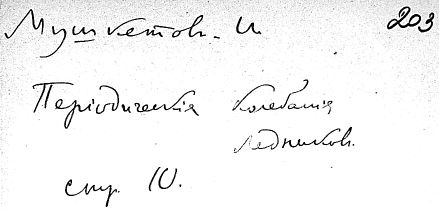 Мушкетов. И. 203
Періодическія колебанія
ледников.
стр. 10.